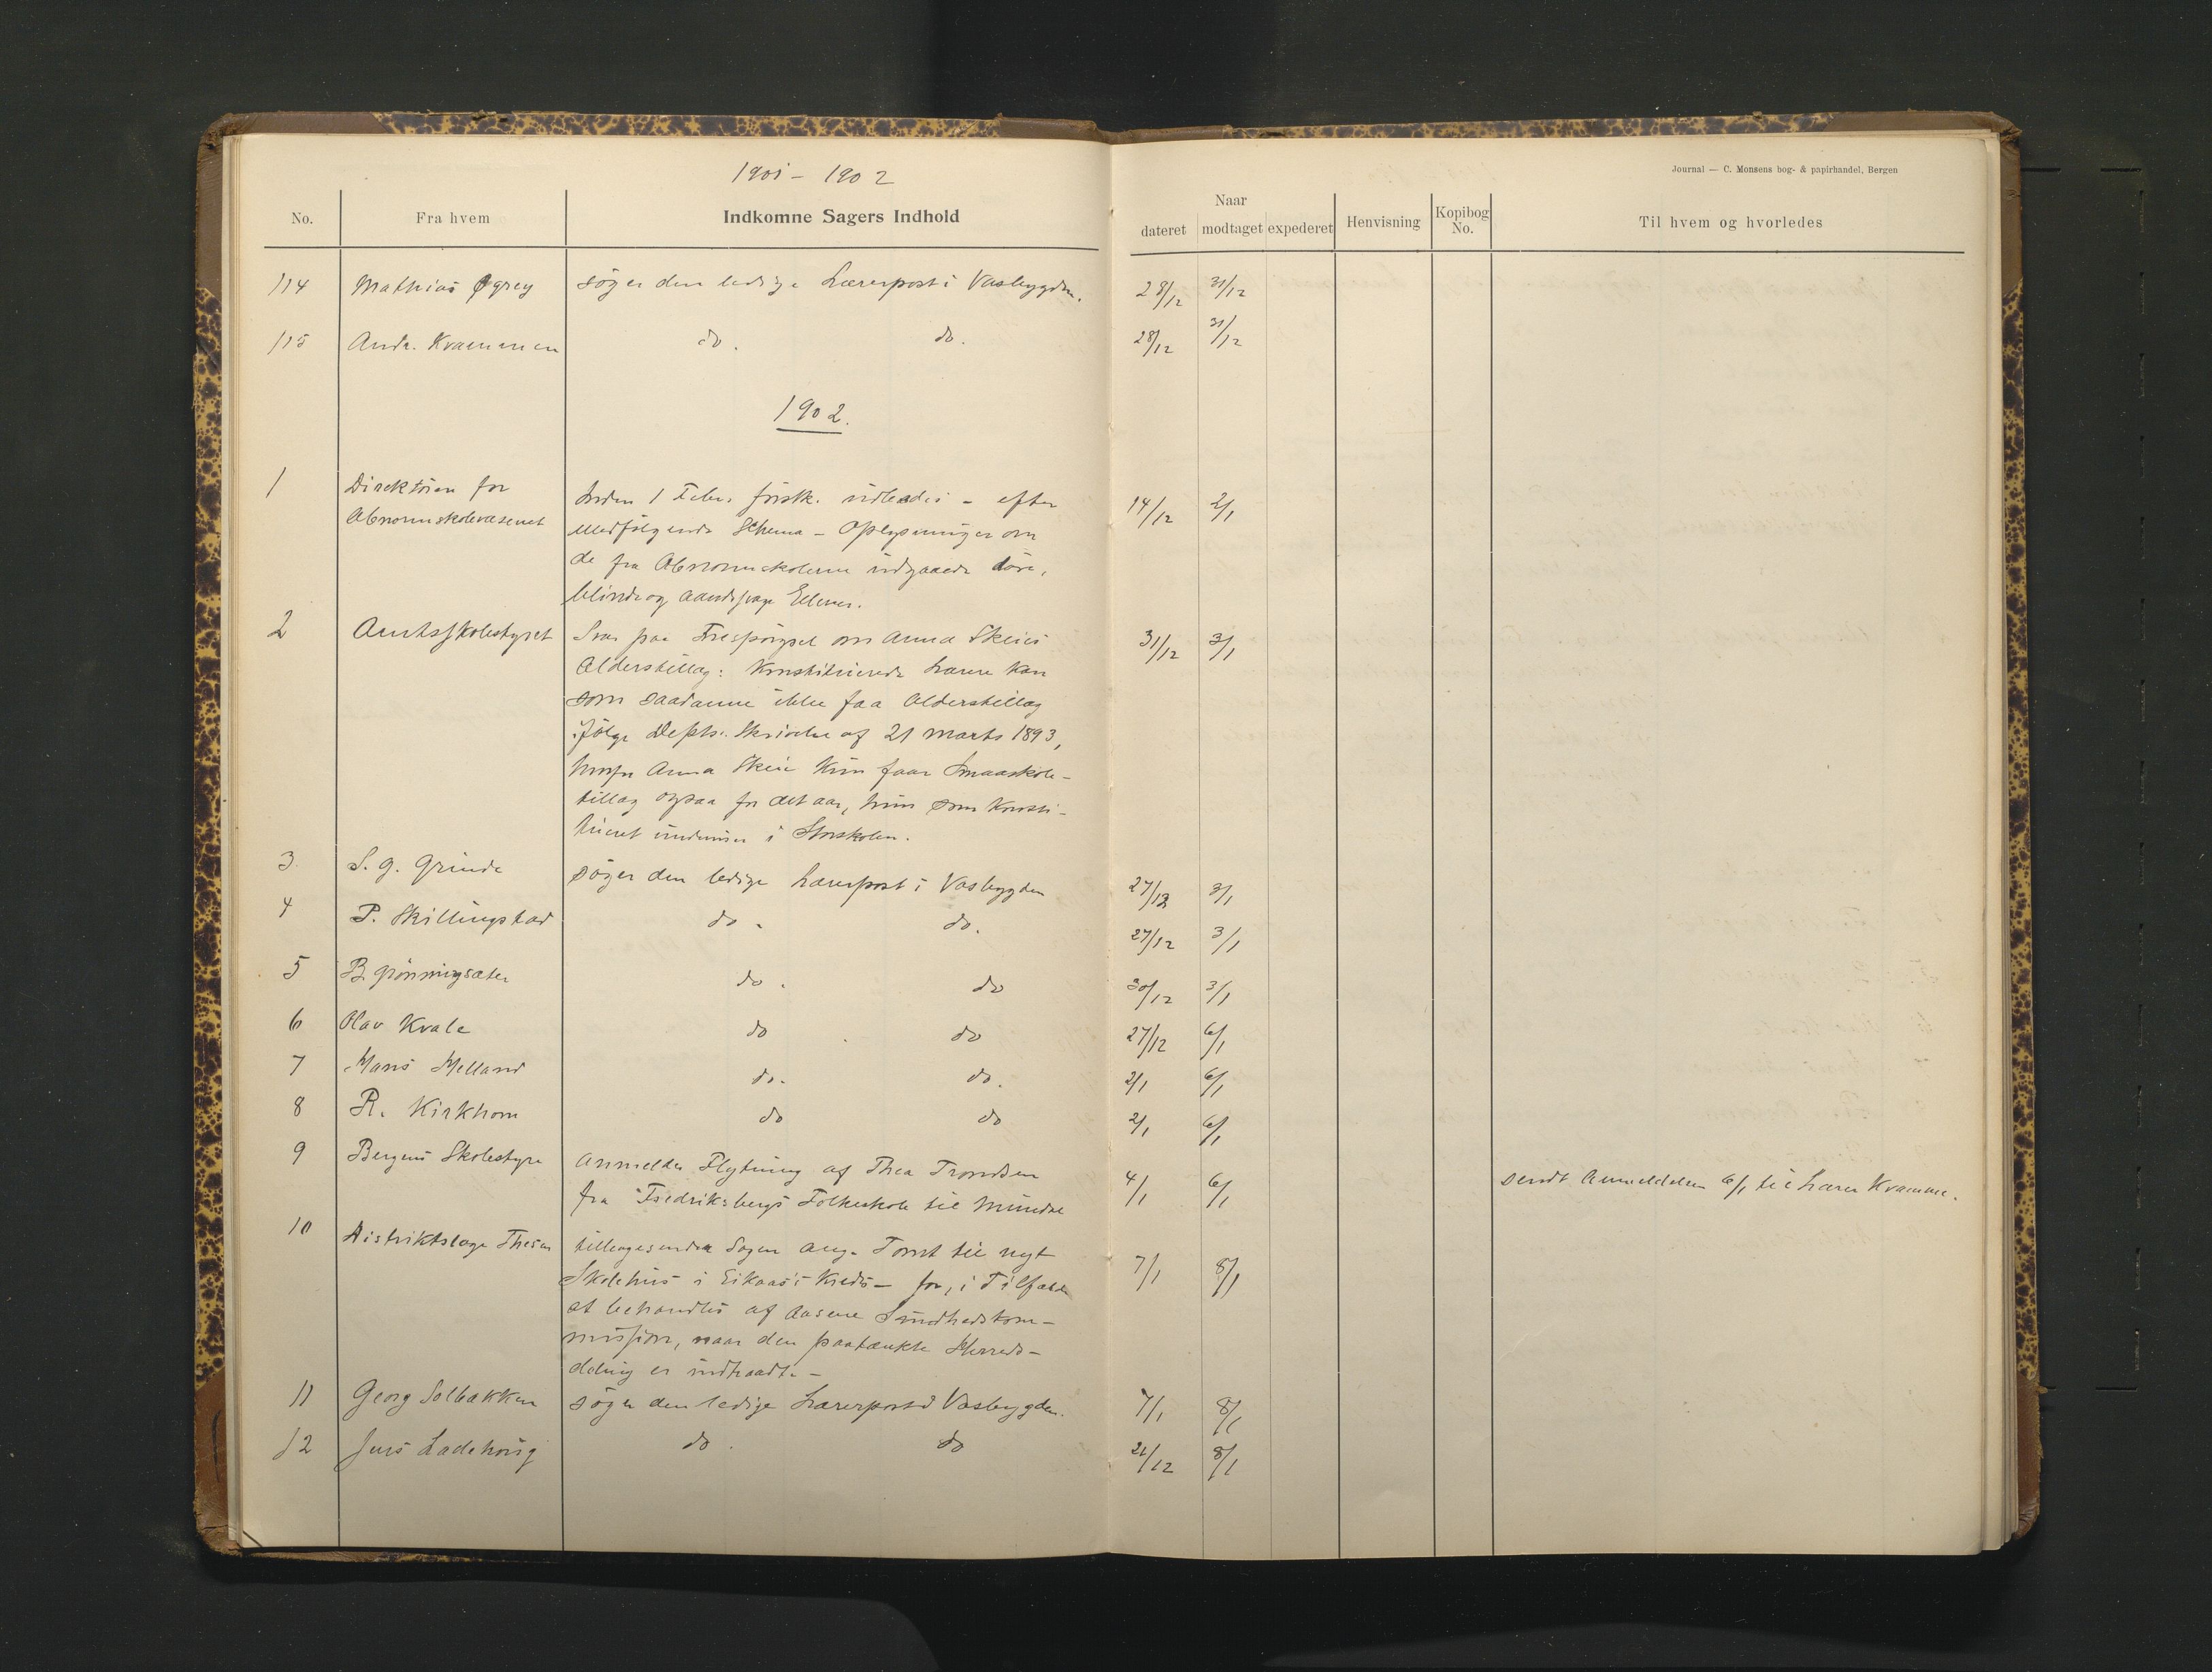 1901 - 1902
Journal — C. Monsens bog- & papirhandel, Bergen
No. Fra hvem Indkomne Sagers Indhold Naar dateret modtaget expederet Henvisning Kopibog No. Til hvem og hvorledes
114 Mathias Øgrey søger den ledige Lærerpost i Vasbygden. 28/12 31/12
115 Andr. Kvammen do. do. 28/12 31/12
1902.
1 Direktøren for Inden 1 Febr. førstk. udbedes - efter 14/12 2/1
Abnormskolevæsenet medfølgende Schema - Oplysninger om
de fra Abnormskolerne udgaaede døve,
blinde og aandssvage Elever.
2 Amtsskolestyret Svar paa Forespørgsel om Anna Skeies 31/12 3/1
Alderstillæg: Konstituerede Lærere kan
som saadanne ikke faa Alderstillæg
ifølge Depts. Skrivelse af 21 Marts 1893,
hvorfor Anna Skeie kun faar Smaaskole-
tillæg ogsaa for det aar, hun som Konsti-
tueret underviser i Storskolen.
3 S. G. Grinde søger den ledige Lærerpost i Vasbygden 27/12 3/1
4 P. Skillingstad do. do. 27/12 3/1
5 B. Grønningsæter do. do 30/12 3/1
6 Olav Kvale do do 27/12 6/1
7 Hans Melland do. do. 2/1 6/1
8 R. Kirkhorn do do 2/1 6/1
9 Bergens Skolestyre Anmelder Flytning af Thea Trondsen 4/1 6/1 sendt Anmeldelsen 6/1 til Lærer Kvamme.
fra Fredriksbergs Folkeskole til Mundal
10 Distriktslæge Thesen tilbagesender Sagen ang. Tomt til nyt 7/1 8/1
Skolehus i Eikaas's Kreds - for, i Tilfælde
at behandles af Aasene Sundhedskom-
mission, naar den paatænkte Herreds-
deling er indtraadt. -
11 Georg Solbakken søger den ledige Lærerpost i Vasbygden. 7/1 8/1
12 Jens Ladehoug do. do 21/12 8/1